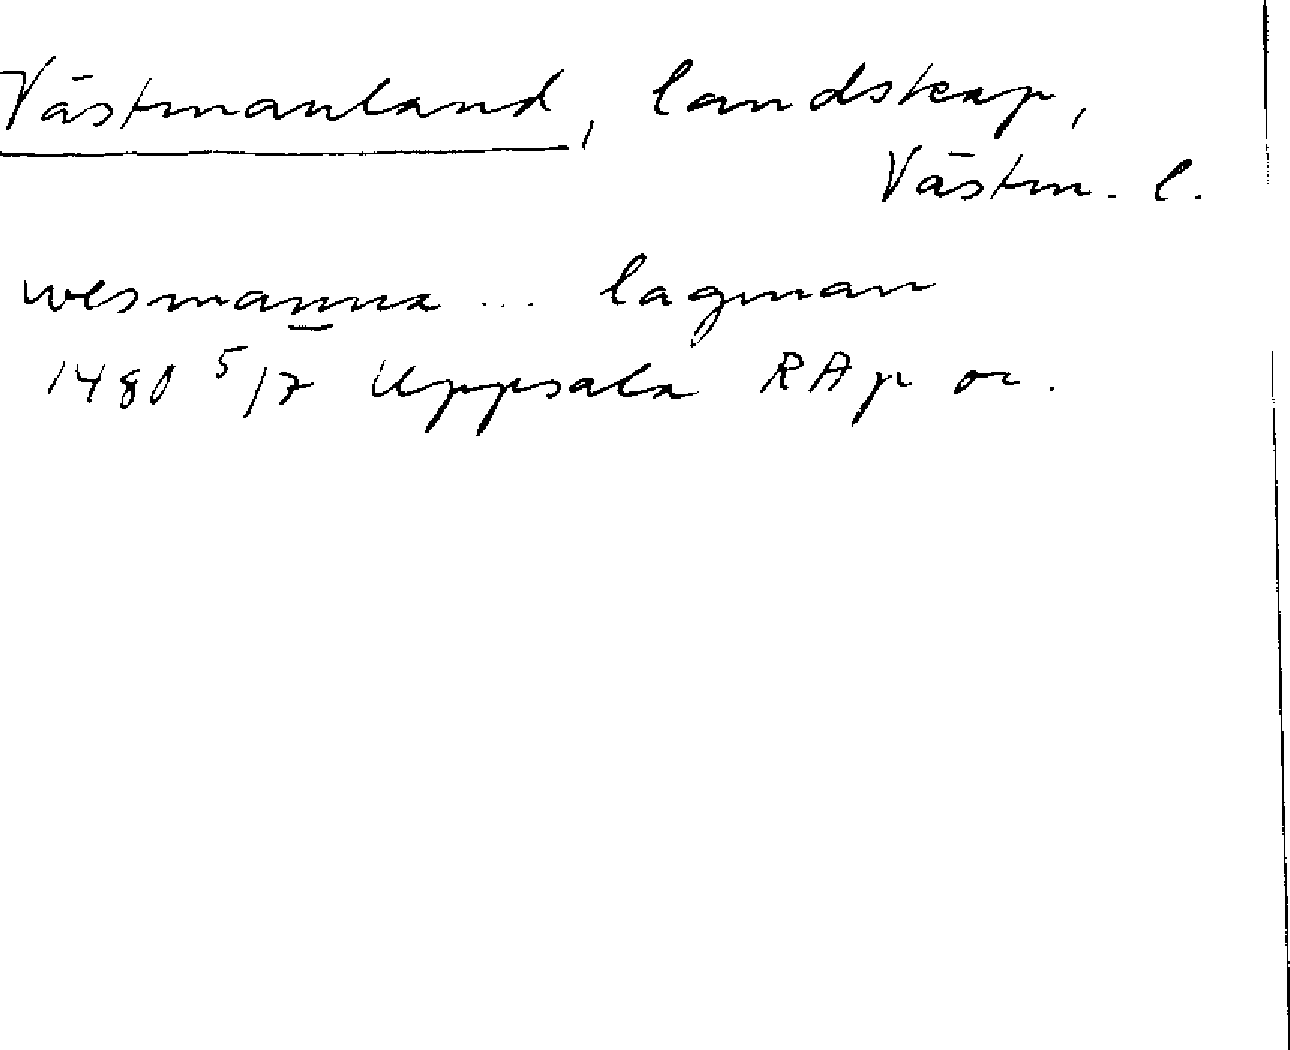 Västmanland, landskap,
Västm. l.
wesmanna ... lagman
1480 5/7 Uppsala RAp or.